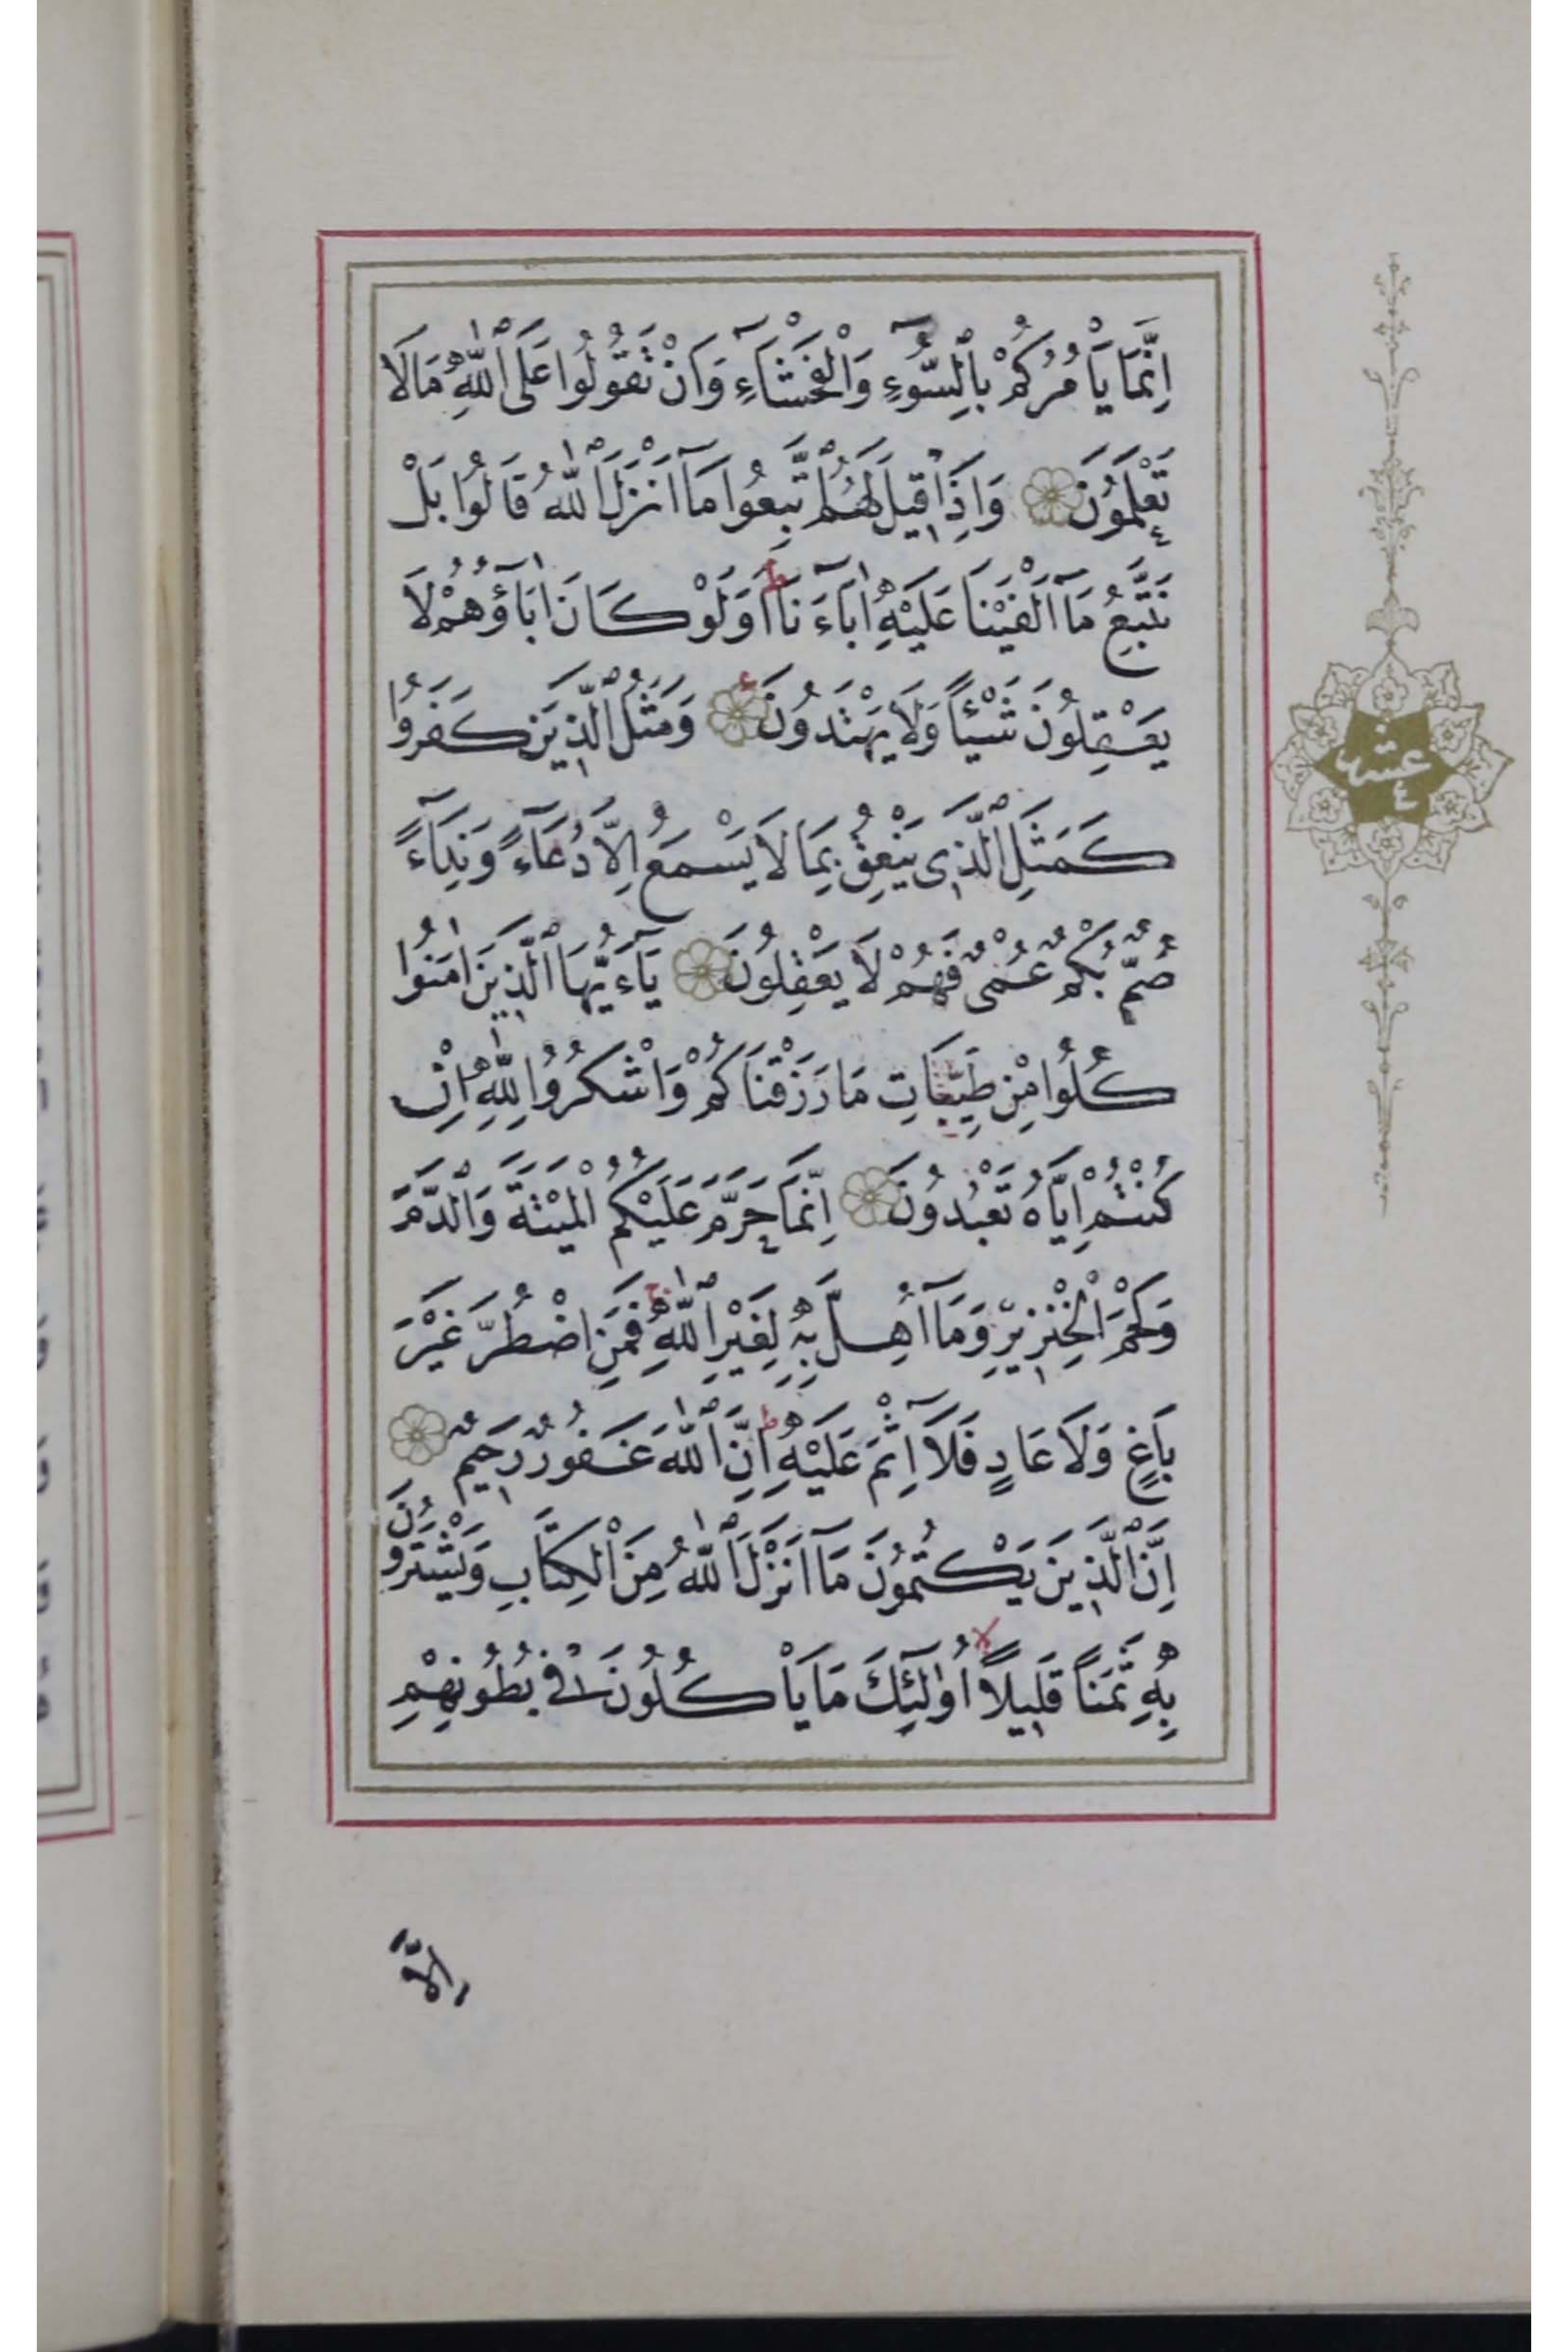 اِنَّمَا يَاْمُرُكُمْ بِالسُّوءِ وَالْفَحْشَاءِ وَاَنْ تَقُولُوا عَلَى اللّٰهِ مَا لَا
تَعْلَمُونَ وَاِذَا قِيلَ لَهُمُ اتَّبِعُوا مَا اَنْزَلَ اللّٰهُ قَالُوا بَلْ
نَتَّبِعُ مَا اَلْفَيْنَا عَلَيْهِ اٰبَاءَنَا ط اَوَلَوْ كَانَ اٰبَاؤُهُمْ لَا
يَعْقِلُونَ شَيْئًا وَلَا يَهْتَدُونَ وَمَثَلُ الَّذِينَ كَفَرُوا
كَمَثَلِ الَّذِى يَنْعِقُ بِمَا لَا يَسْمَعُ اِلَّا دُعَاءً وَنِدَاءً
صُمٌّ بُكْمٌ عُمْىٌ فَهُمْ لَا يَعْقِلُونَ يَاءَيُّهَا الَّذِينَ اٰمَنُوا
كُلُوا مِنْ طَيِّبَاتِ مَا رَزَقْنَاكُمْ وَاشْكُرُوا لِلّٰهِ اِنْ
كُنْتُمْ اِيَّاهُ تَعْبُدُونَ اِنَّمَا حَرَّمَ عَلَيْكُمُ الْمَيْتَةَ وَالدَّمَ
وَلَحْمَ الْخِنْزِيرِ وَمَا اُهِلَّ بِهِ لِغَيْرِ اللّٰهِ ج فَمَنِ اضْطُرَّ غَيْرَ
بَاغٍ وَلَا عَادٍ فَلَا اِثْمَ عَلَيْهِ ط اِنَّ اللّٰهَ غَفُورٌ رَحِيمٌ
اِنَّ الَّذِينَ يَكْتُمُونَ مَا اَنْزَلَ اللّٰهُ مِنَ الْكِتَابِ وَيَشْتَرُونَ
بِهِ ثَمَنًا قَلِيلًا لا اُولٰئِكَ مَا يَاْكُلُونَ فِى بُطُونِهِمْ
اِلَّا
عشر